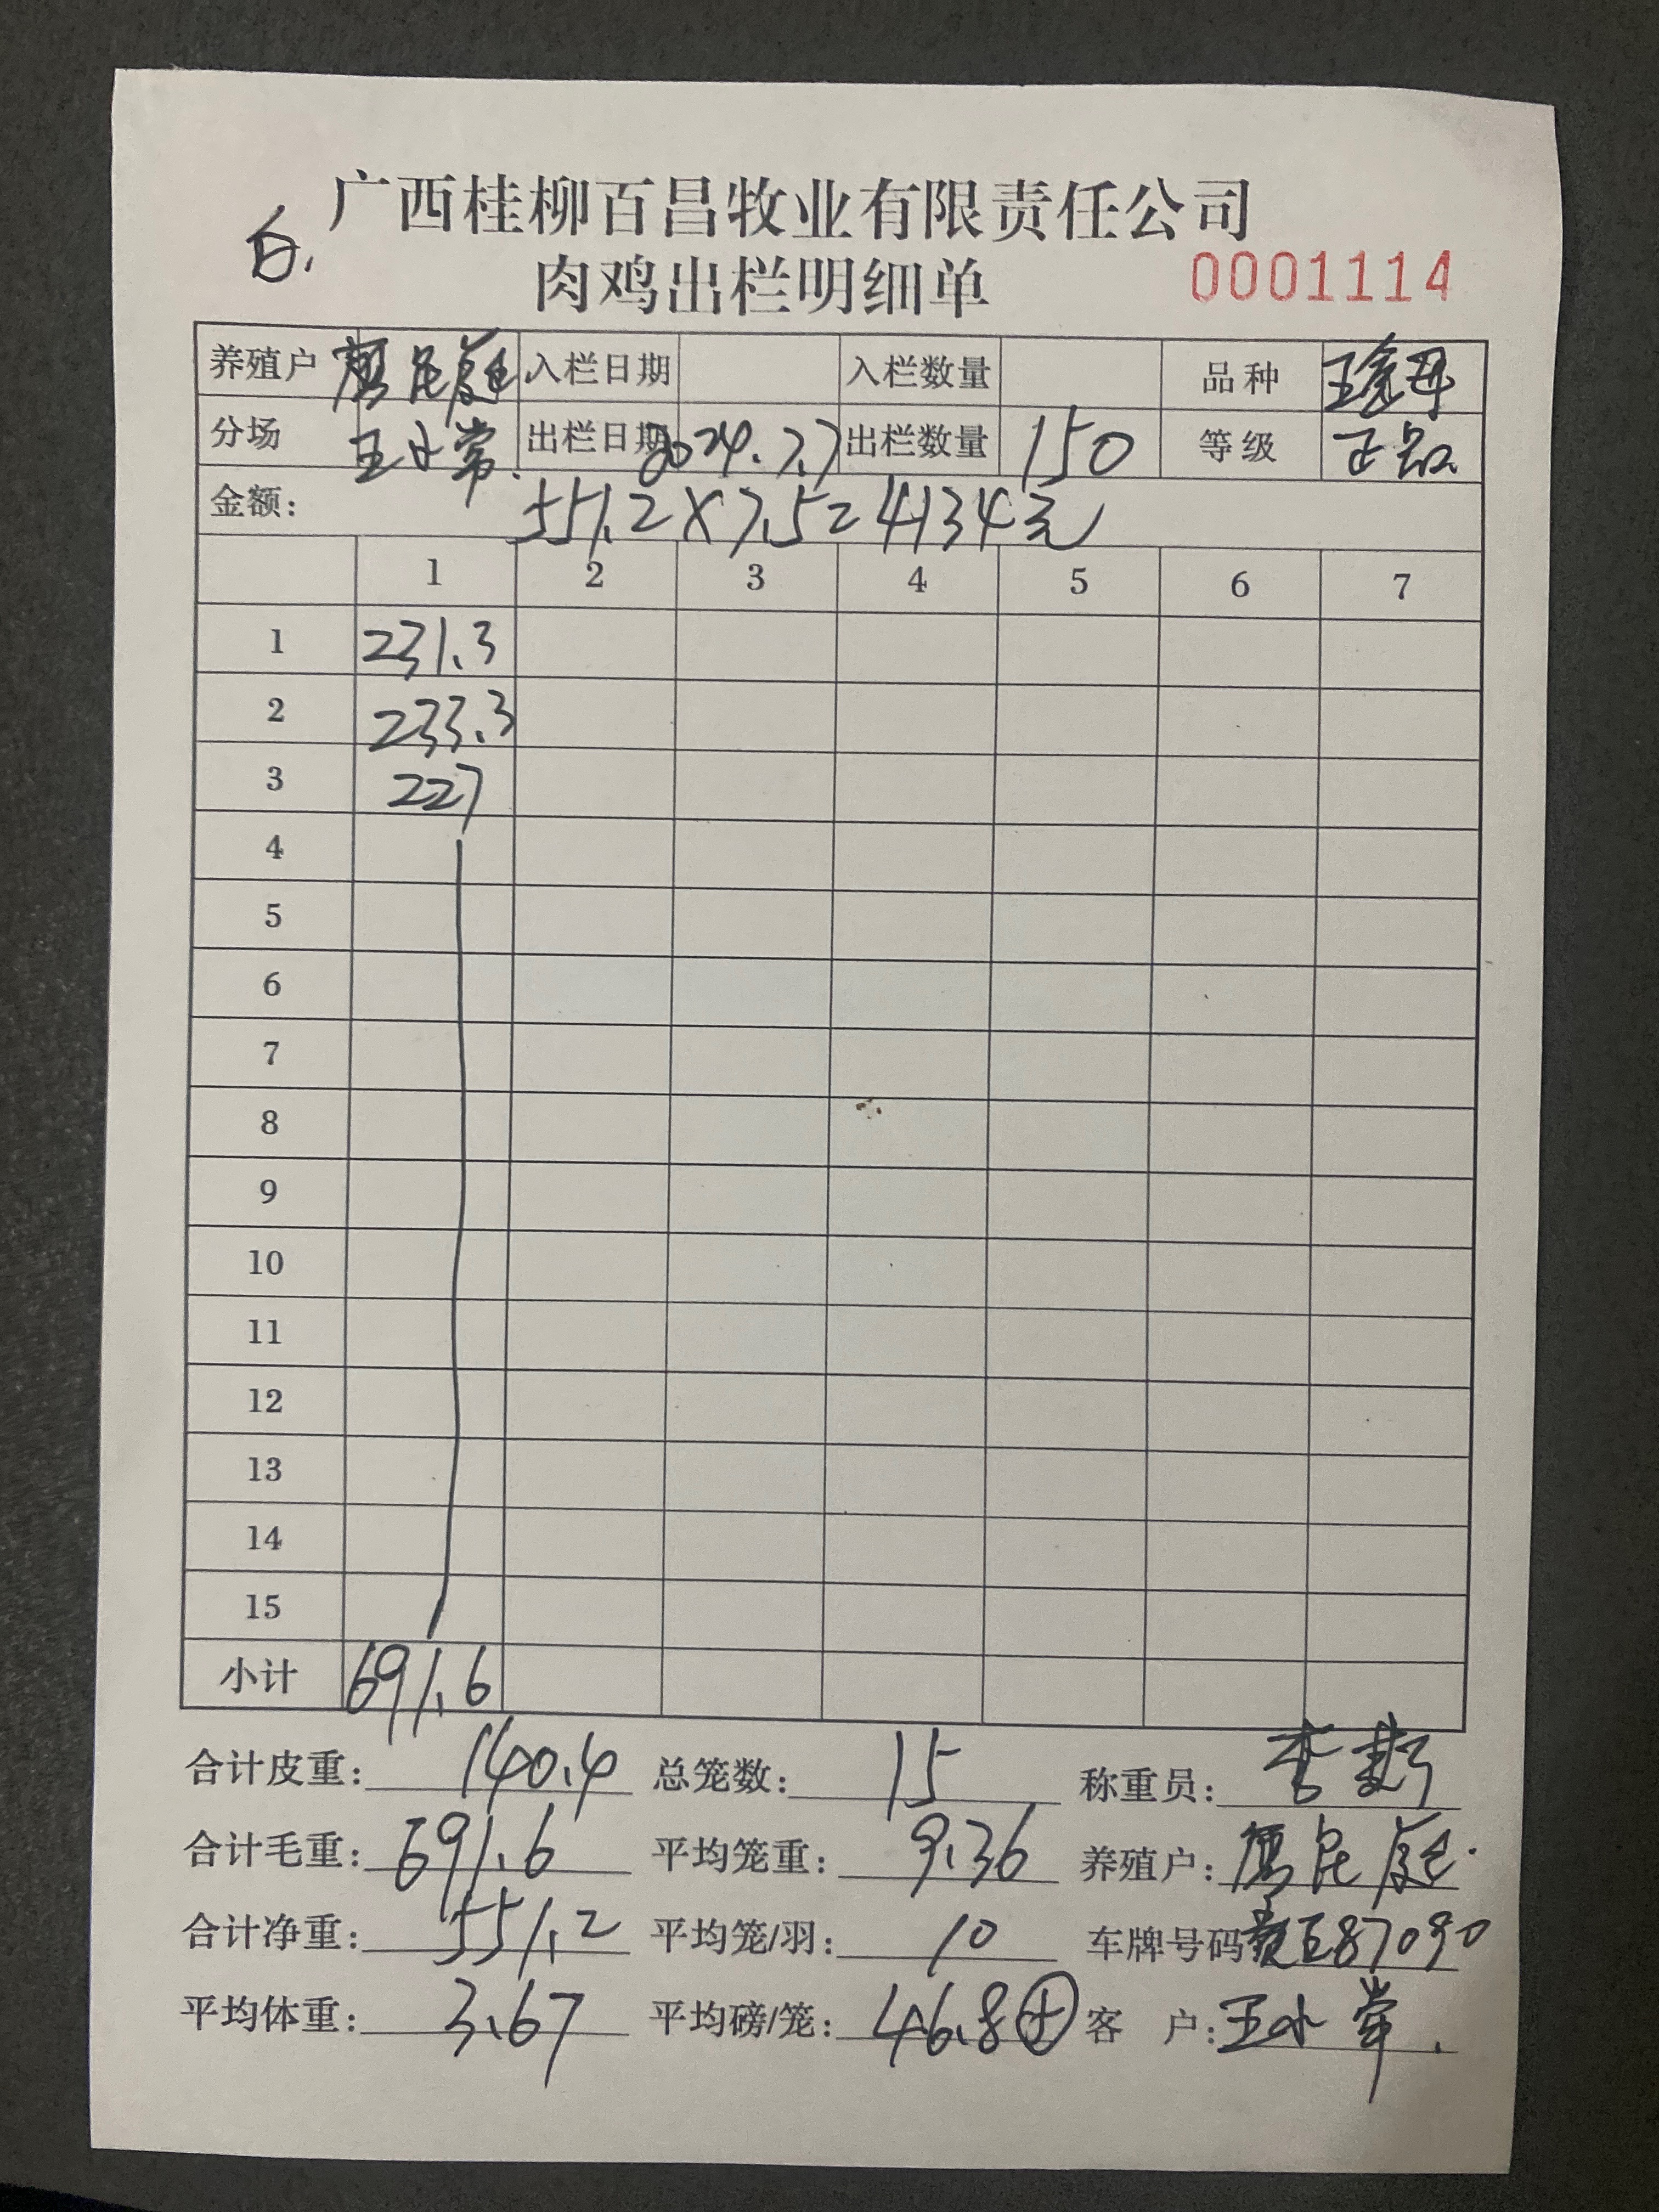 广西桂柳百昌牧业有限责任公司
白.
肉鸡出栏明细单 0001114
养殖户 入栏日期 入栏数量 品种
分场 王小常. 出栏日期 2024.7.7 出栏数量 150 等级 正品
金额: 551.2×7.5=4134元
1 2 3 4 5 6 7
1 231.3
2 233.3
3 227
4
5
6
7
8
9
10
11
12
13
14
15
小计 691.6
合计皮重: 140.4 总笼数: 15 称重员: 李
合计毛重: 691.6 平均笼重: 9.36 养殖户:
合计净重: 551.2 平均笼/羽: 10 车牌号码 87090
平均体重: 3.67 平均磅/笼: 46.8 客 户: 王小常.